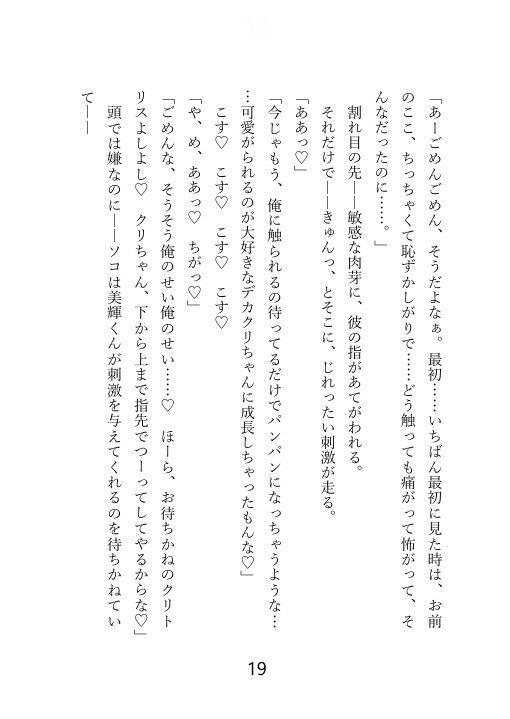 「あーごめんごめん、そうだよなぁ。最初……いちばん最初に見た時は、お前
のここ、ちっちゃくて恥ずかしがりで……どう触っても痛がって怖がって、そ
んなだったのに……。」
割れ目の先――敏感な肉芽に、彼の指があてがわれる。
それだけで――きゅんっ、とそこに、じれったい刺激が走る。
「ああっ♡」
「今じゃもう、俺に触られるの待ってるだけでパンパンになっちゃうような…
…可愛がられるのが大好きなデカクリちゃんに成長しちゃったもんな♡」
こす♡ こす♡ こす♡ こす♡
「や、め、ああっ♡ ちがっ♡」
「ごめんな、そうそう俺のせい俺のせい……♡ ほーら、お待ちかねのクリト
リスよしよし♡ クリちゃん、下から上まで指先でつーってしてやるからな♡」
頭では嫌なのに――ソコは美輝くんが刺激を与えてくれるのを待ちかねてい
て――
19